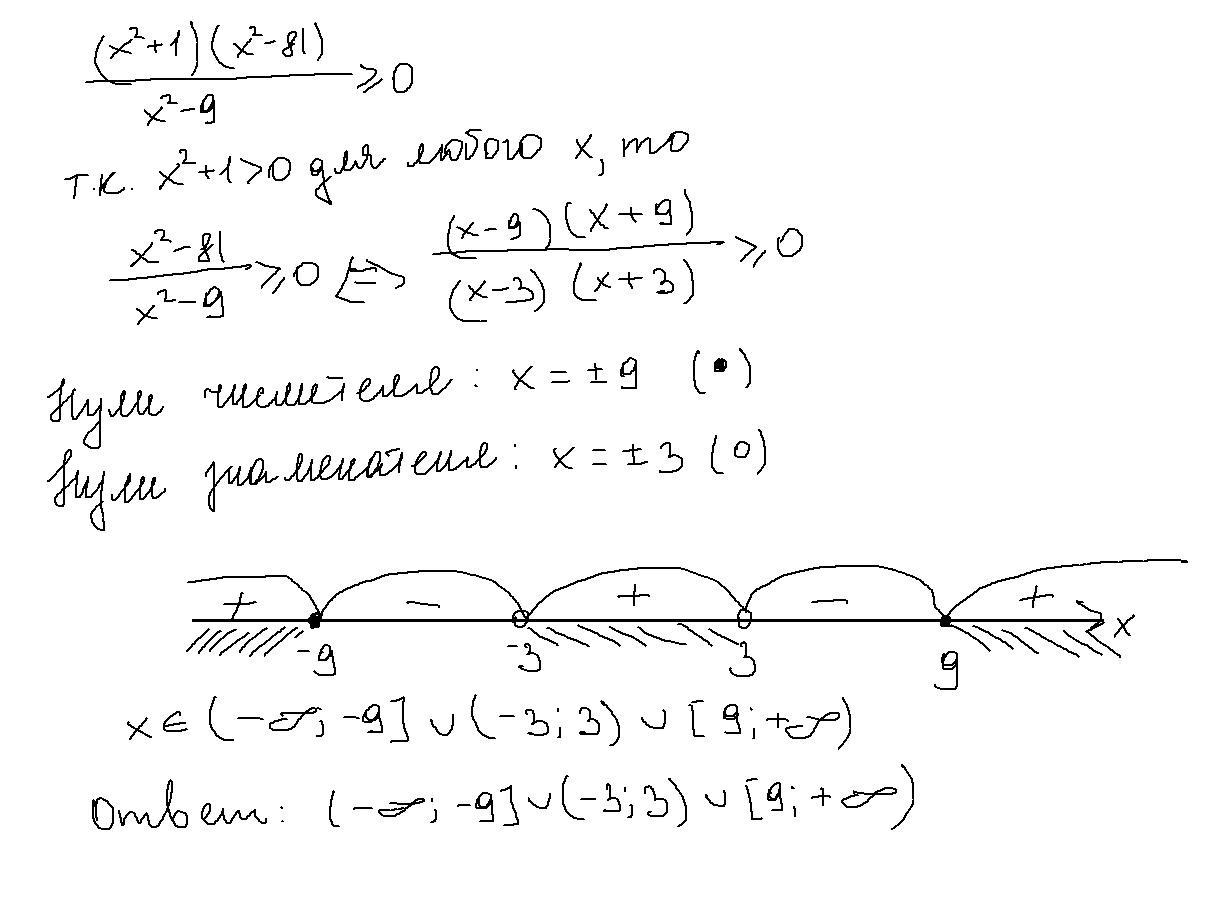 (x²+1)(x²-81)/(x²-9) ≥ 0
т.к. x²+1>0 для любого x, то
(x²-81)/(x²-9) ≥ 0 ⇔ (x-9)(x+9)/((x-3)(x+3)) ≥ 0
Нули числителя: x = ±9 (•)
Нули знаменателя: x = ±3 (○)
+ - + - +
-9 -3 3 9 x
x ∈ (-∞; -9] ∪ (-3; 3) ∪ [9; +∞)
Ответ: (-∞; -9] ∪ (-3; 3) ∪ [9; +∞)